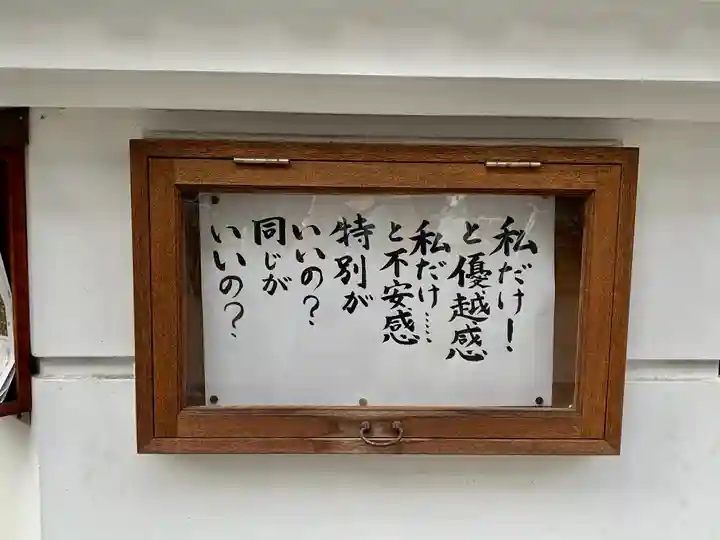 私だけ!
と優越感
私だけ……
と不安感
特別が
いいの?
同じが
いいの?